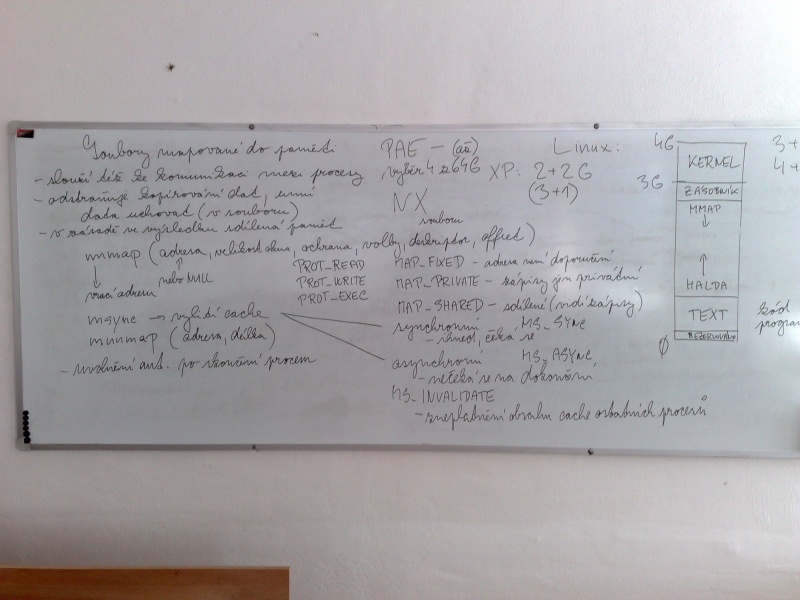 Soubory mapované do paměti
- slouží též ke komunikaci mezi procesy
- odstraňuje kopírování dat, umí
data uchovat (v souboru)
- v zásadě ve výsledku sdílená paměť
mmap (adresa, velikost okna, ochrana, volby, deskriptor souboru, offset)
↓ vrací adresu
↑ nebo NULL
PROT_READ
PROT_WRITE
PROT_EXEC
msync → vylití cache
munmap (adresa, délka)
- uvolnění aut. po skončení procesu
PAE -
výběr 4 z 64G
XP: 2+2G
(3+1)
NX
MAP_FIXED - adresa není doporučení
MAP_PRIVATE - zápisy jsou privátní
MAP_SHARED - sdílené (vidí zápisy)
synchronní MS_SYNC
- ihned, čeká se
asynchronní MS_ASYNC
- nečeká se na dokončení
MS_INVALIDATE
- zneplatnění obsahu cache ostatních procesů
Linux:
4G
KERNEL
3G
ZÁSOBNÍK
MMAP
↓
↑
HALDA
TEXT
REZERVOVÁNO
0
3+
4+
kód
program